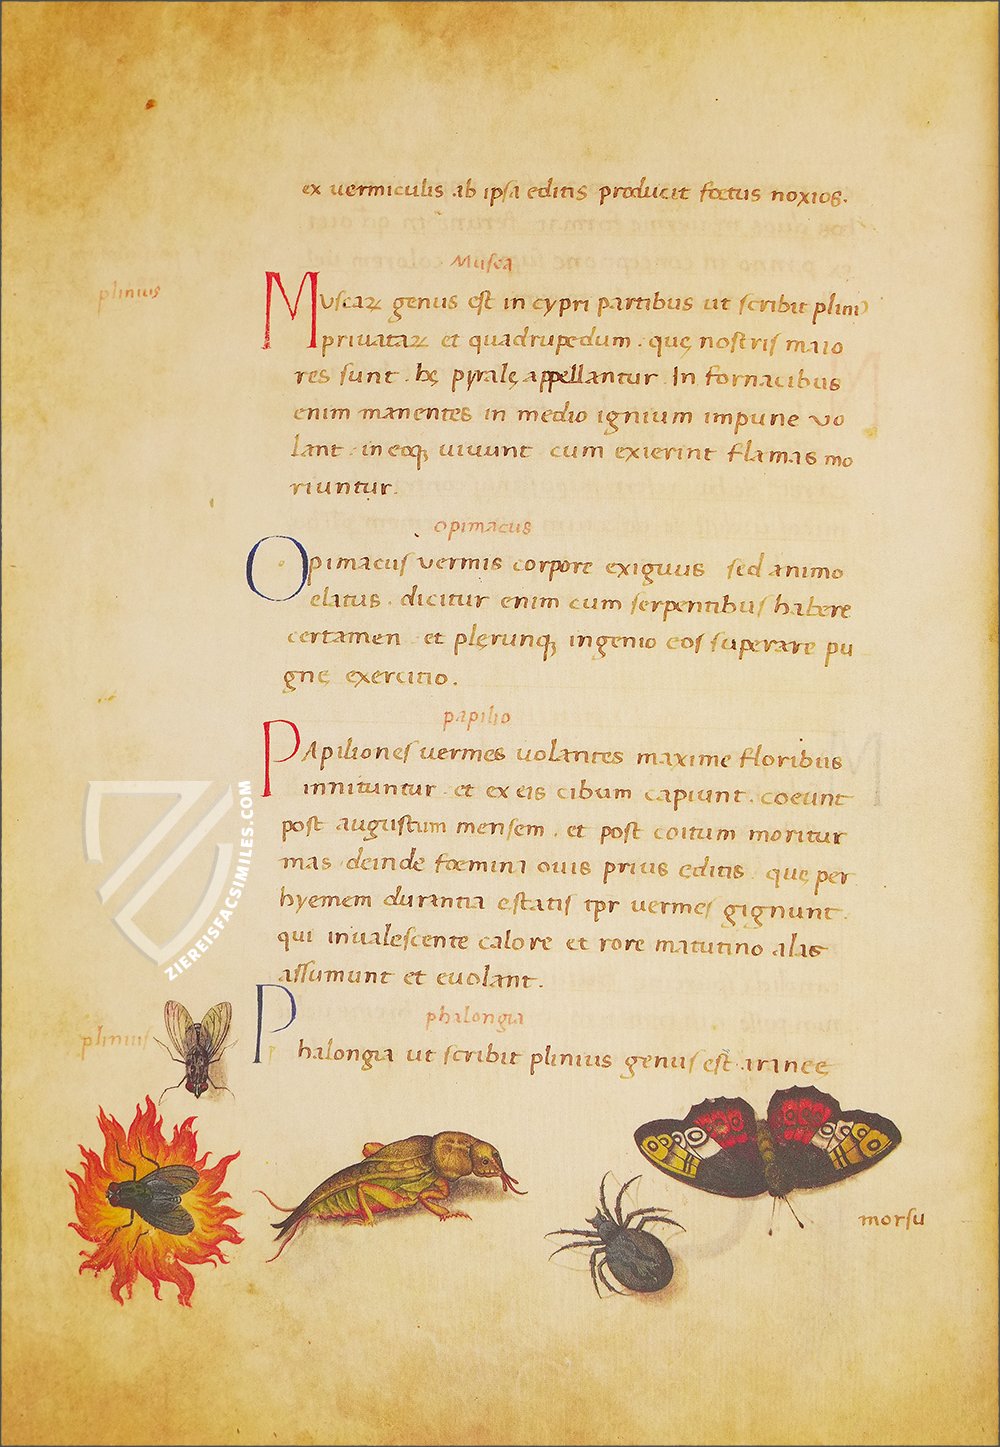 ex vermiculis ab ipsa editis producit fœtus noxios.
Musca
plinius
Muscaꝝ genus est in cypri partibus ut scribit plini
priuataꝝ et quadrupedum . quę nostris maio
res sunt . hę pyralę appellantur . In fornacibus
enim manentes in medio ignium impune vo
lant . in eoqꝫ uiuunt cum exierint flamas mo
riuntur.
opimacus
Opimacus vermis corpore exiguus sed animo
elatus . dicitur enim cum serpentibus habere
certamen et plęrunqꝫ ingenio eos superare pu
gnę exercitio.
papilio
PApiliones vermes uolantes maxime floribus
innituntur . et ex eis cibum capiunt . coeunt
post augustum mensem . et post coitum moritur
mas deinde fœmina ouis prius editis . quę per
hyemem durantia estatis tpr vermes gignunt .
qui inualescente calore et rore matutino alas
assumunt et euolant.
phalongia
plinius
Phalongia ut scribit plinius genus est aranee
morsu
ZIEREISFACSIMILES.COM